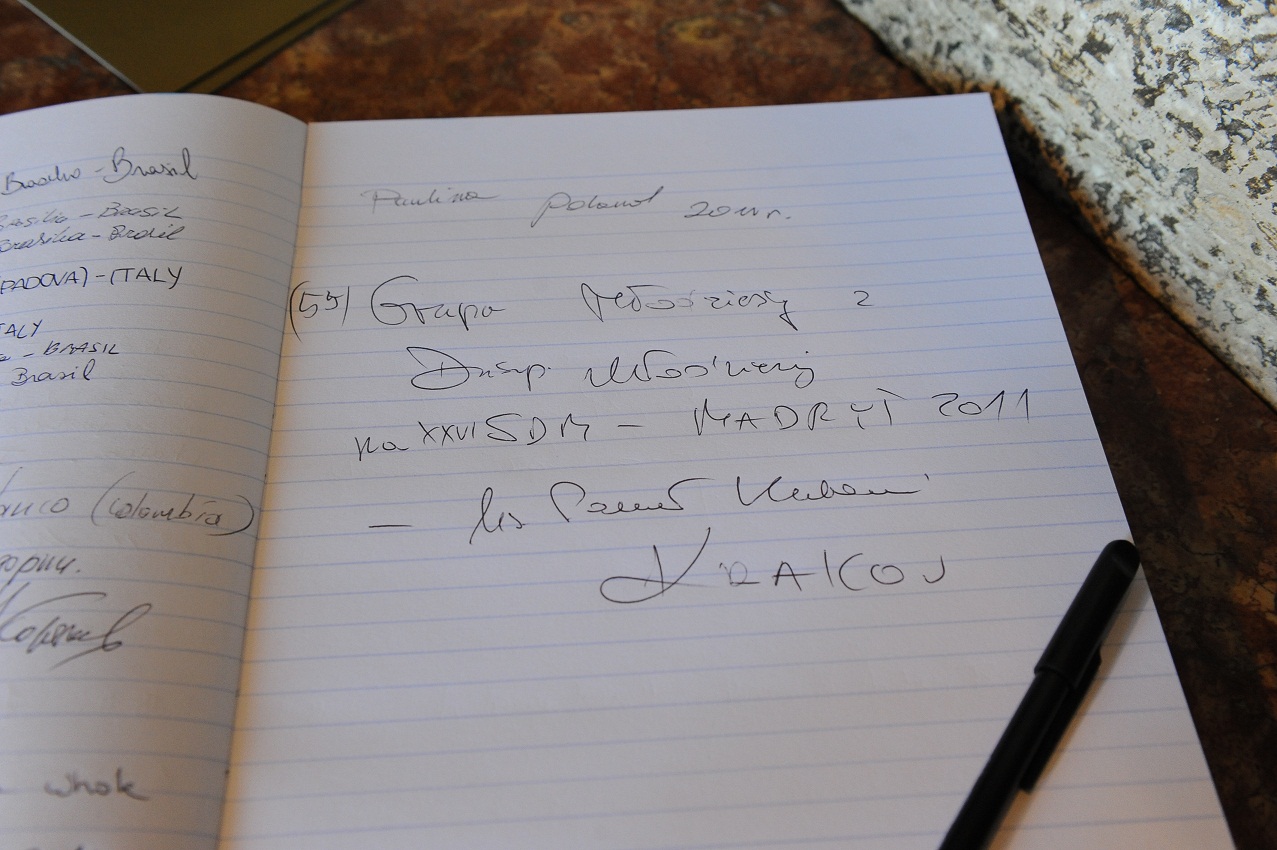 Brasilia - Brasil
Brasilia - Brasil
Brasilia - Brasil
(PADOVA) - ITALY
ITALY
- BRASIL
Brasil
(Colombia)
whole
Paulina Poland 2011 r.
(55) Grupa Młodzieży z
Duszp. Młodzieży
na XXVI ŚDM - MADRYT 2011
- ks Paweł
KRAKÓW